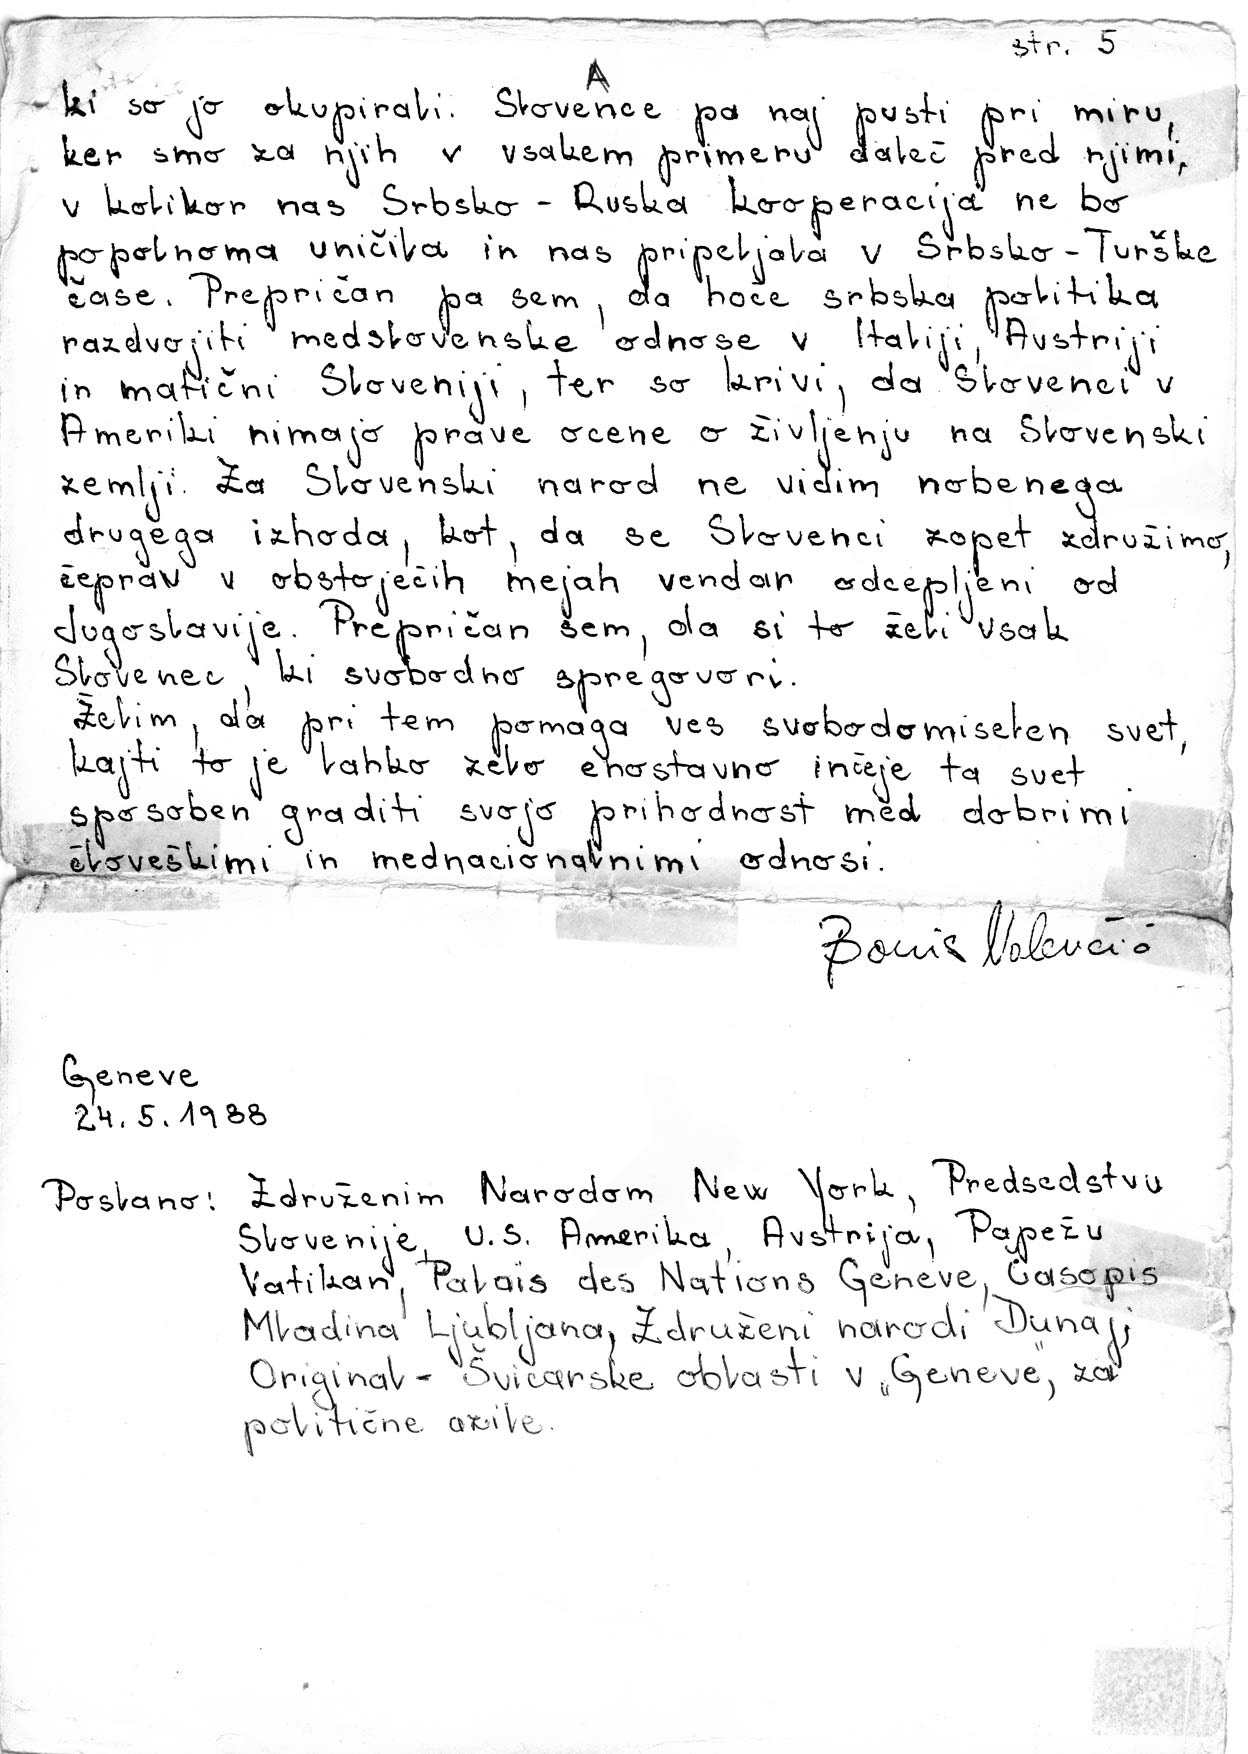 str. 5
A
ki so jo okupirali. Slovence pa naj pusti pri miru,
ker smo za njih v vsakem primeru daleč pred njimi,
v kolikor nas Srbsko - Ruska kooperacija ne bo
popolnoma uničila in nas pripeljala v Srbsko - Turške
čase. Prepričan pa sem, da hoče srbska politika
razdvojiti medslovenske odnose v Italiji, Austriji
in matični Sloveniji, ter so krivi, da Slovenci v
Ameriki nimajo prave ocene o življenju na Slovenski
zemlji. Za Slovenski narod ne vidim nobenega
drugega izhoda, kot, da se Slovenci zopet združimo,
čeprav v obstoječih mejah vendar odcepljeni od
Jugoslavije. Prepričan sem, da si to želi vsak
Slovenec, ki svobodno spregovori.
Želim, da pri tem pomaga ves svobodomiselen svet,
kajti to je lahko zelo enostavno inčeje ta svet
sposoben graditi svojo prihodnost med dobrimi
človeškimi in mednacionalnimi odnosi.
Boris
Geneve
24.5.1988
Poslano: Združenim Narodom New York, Predsedstvu
Slovenije, U.S. Amerika, Avstrija, Papežu
Vatikan, Palais des Nations Geneve, Časopis
Mladina Ljubljana, Združeni narodi Dunaj,
Original - Švicarske oblasti v „Geneve", za
politične azile.